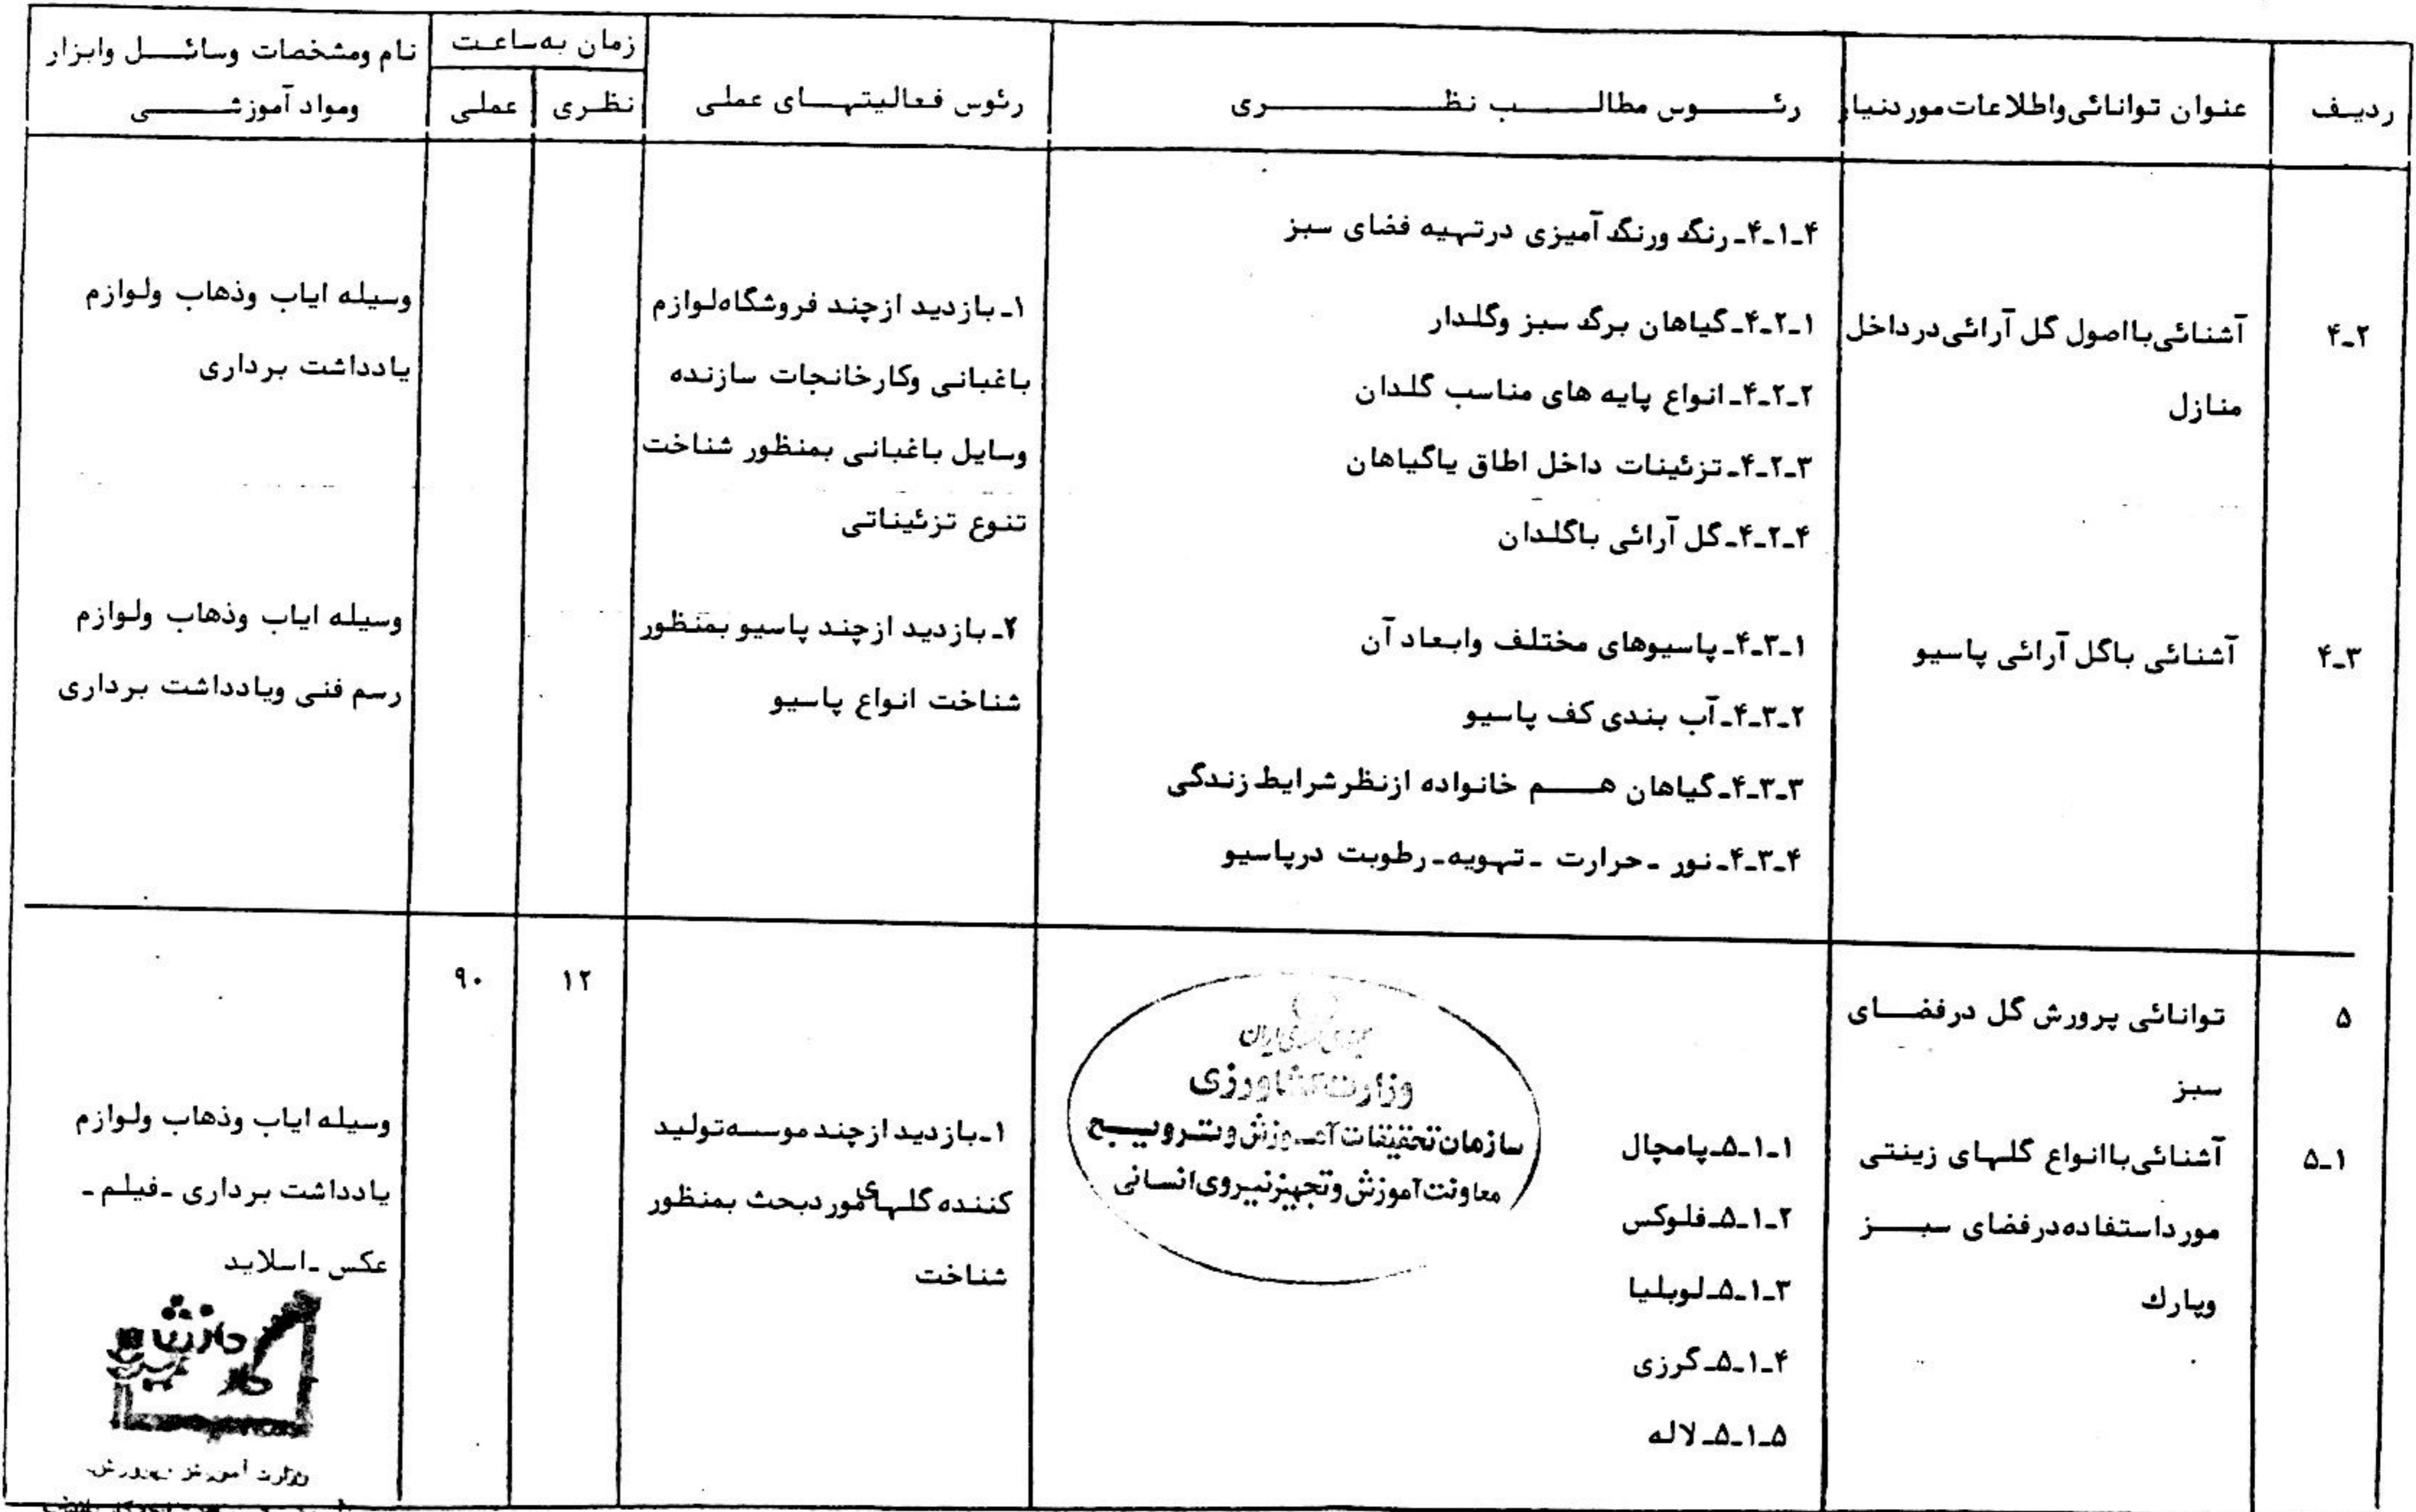 ردیف
عنوان توانائی واطلاعات موردنیاز
رئوس مطالب نظری
رئوس فعالیتهای عملی
زمان به ساعت
نظری
عملی
نام ومشخصات وسائل وابزار
ومواد آموزشی
۴-۱-۴- رنگ ورنگ آمیزی درتهیه فضای سبز
۴-۲
آشنائی بااصول گل آرائی درداخل
منازل
۴-۲-۱- گیاهان برگ سبز وگلدار
۴-۲-۲- انواع پایه های مناسب گلدان
۴-۲-۳- تزئینات داخل اطاق یاگیاهان
۴-۲-۴- گل آرائی باگلدان
۱- بازدید ازچند فروشگاه لوازم
باغبانی وکارخانجات سازنده
وسایل باغبانی بمنظور شناخت
تنوع تزئیناتی
وسیله ایاب وذهاب ولوازم
یادداشت برداری
۴-۳
آشنائی باگل آرائی پاسیو
۴-۳-۱- پاسیوهای مختلف وابعاد آن
۴-۳-۲- آب بندی کف پاسیو
۴-۳-۳- گیاهان هم خانواده ازنظر شرایط زندگی
۴-۳-۴- نور - حرارت - تهویه - رطوبت درپاسیو
۲- بازدید ازچند پاسیو بمنظور
شناخت انواع پاسیو
وسیله ایاب وذهاب ولوازم
رسم فنی ویادداشت برداری
۵
توانائی پرورش گل درفضای
سبز
۱۲
۹۰
۵-۱
آشنائی باانواع گلهای زینتی
مورداستفاده درفضای سبز
وپارک
۵-۱-۱- پامچال
۵-۱-۲- فلوکس
۵-۱-۳- لوبلیا
۵-۱-۴- گرزی
۵-۱-۵- لاله
۱- بازدید ازچند موسسه تولید
کننده گلهای موردبحث بمنظور
شناخت
وسیله ایاب وذهاب ولوازم
یادداشت برداری - فیلم -
عکس - اسلاید
وزارت کشاورزی
سازمان تحقیقات آموزش و ترویج
معاونت آموزش و تجهیز نیروی انسانی
وزارت آموزش و پرورش